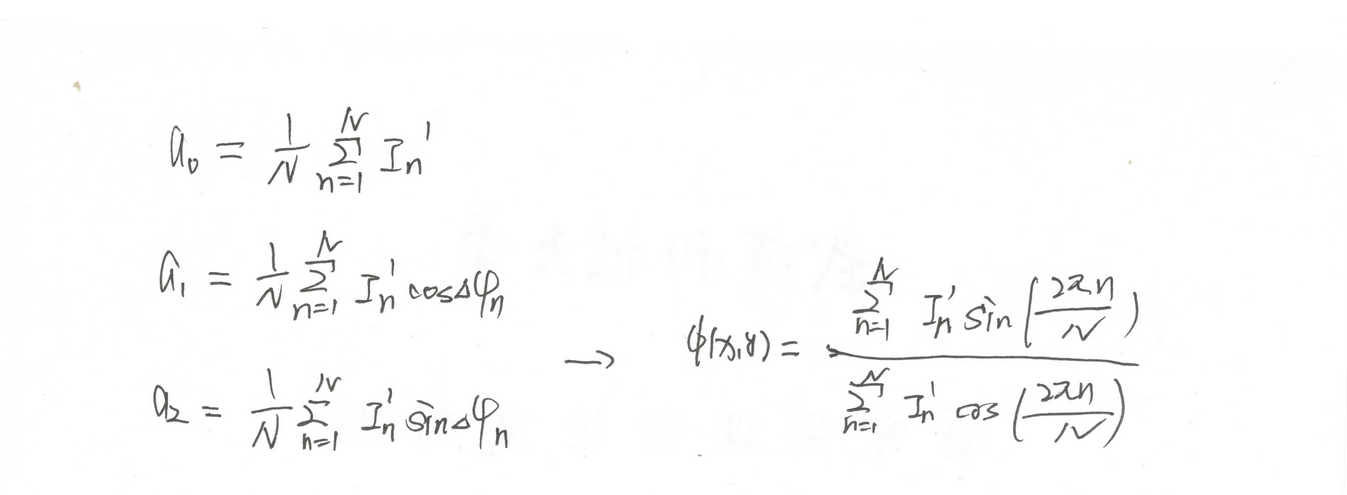 a₀ = 1/N ∑_{n=1}^{N} Iₙ'
a₁ = 1/N ∑_{n=1}^{N} Iₙ' cosΔφₙ
a₂ = 1/N ∑_{n=1}^{N} Iₙ' sinΔφₙ
→ ϕ(x,y) = ∑_{n=1}^{N} Iₙ' sin(2πn/N) / ∑_{n=1}^{N} Iₙ' cos(2πn/N)